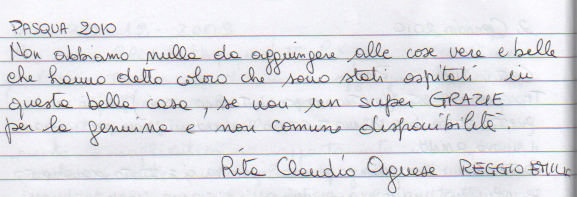 PASQUA 2010
Non abbiamo nulla da aggiungere alle cose vere e belle
che hanno detto coloro che sono stati ospitati in
questa bella casa, se non un super GRAZIE
per la genuina e non comune disponibilità.
Rita Claudio Agnese REGGIO EMILIA